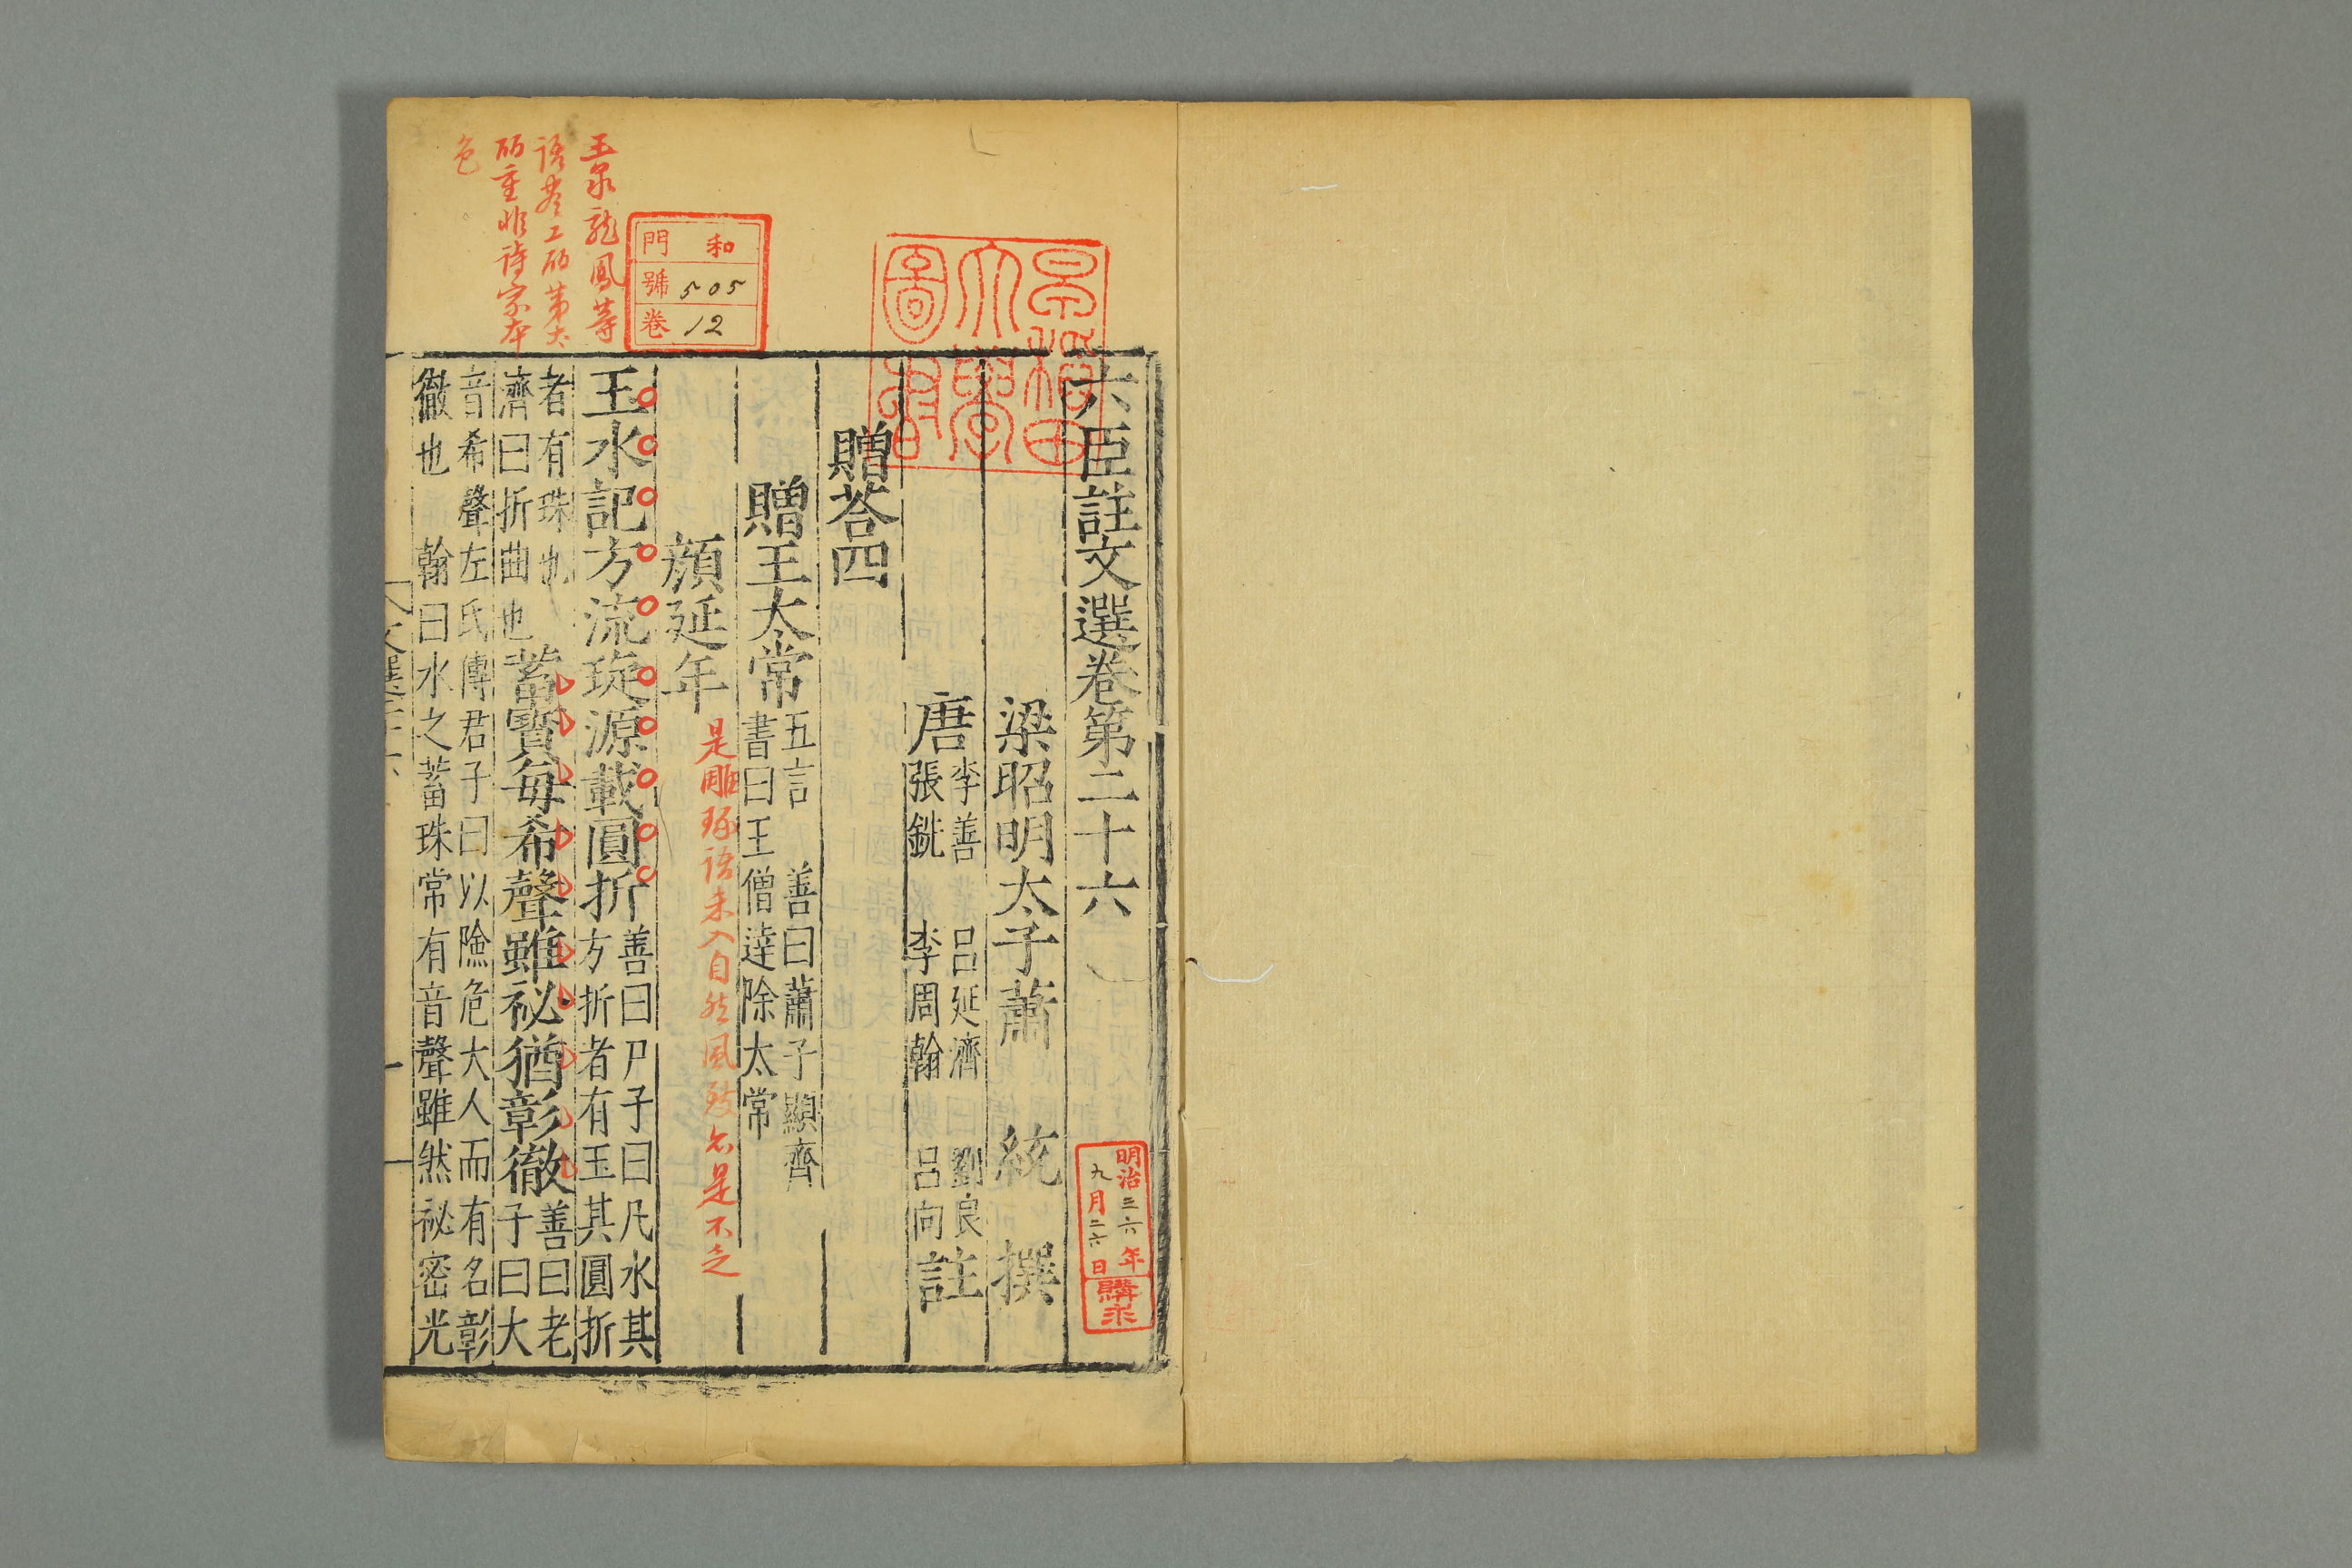 六臣註文選卷第二十六
梁昭明太子蕭統撰
唐
李善 呂延濟 劉良
張銑 李周翰 呂向
註
贈荅四
贈王太常
五言 善曰蕭子顯齊
書曰王僧達除太常
顔延年
是雕琢語未入自然風致亦是不乏
玉水記方流琁源載圓折
善曰尸子曰凡水其
方折者有玉其圓折
者有珠也
濟曰折曲也
蓄寶每希聲雖祕猶彰徹
善曰老
子曰大
音希聲左氏傳君子曰以險危大人而有名彰
徹也 翰曰水之蓄珠常有音聲雖然祕密光
玉泉龍鳳等
語若工而第太
而重非詩家本
色
和
門
號 505
卷 12
早稻田
大學
圖書
明治三六年
九月二六日
購求